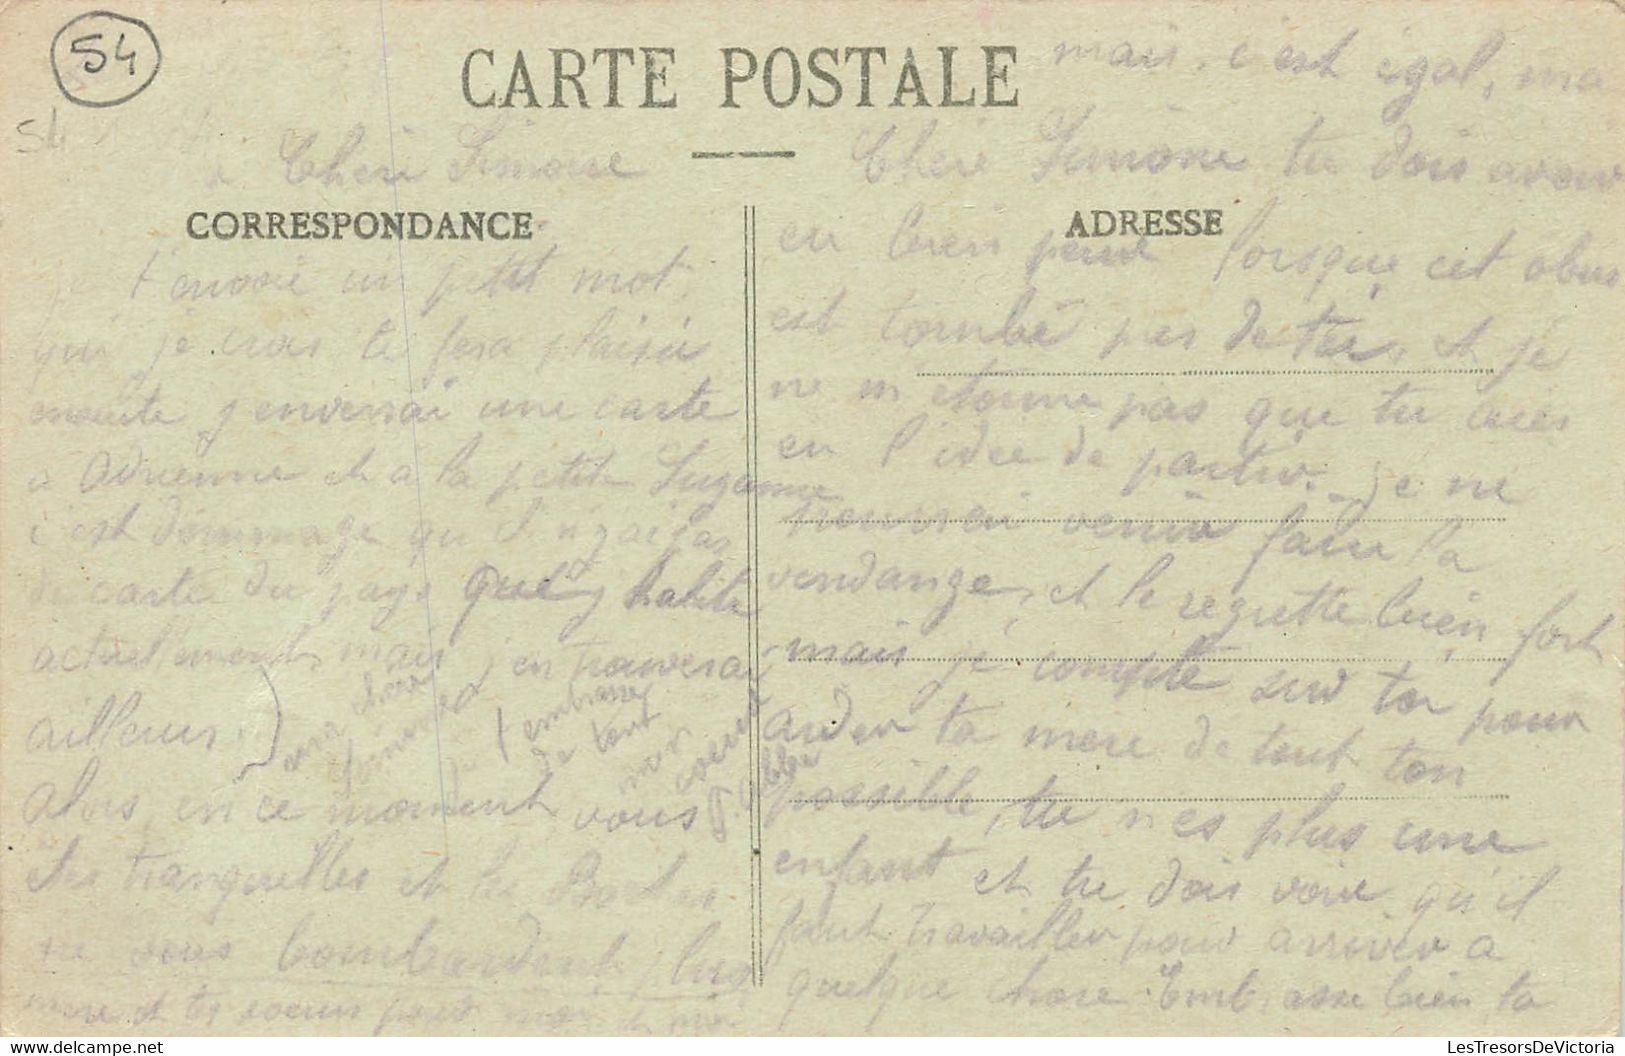 54
54
CARTE POSTALE
Chère Simone
CORRESPONDANCE
je t'envoie un petit mot
qui je crois te fera plaisir
ensuite j'enverrai une carte
à Adrienne et à la petite Suzanne
c'est dommage qu'il n'y ai pas
de carte du pays que j habite
actuellement, mais j'en trouverai
ailleurs.
Alors en ce moment vous
êtes tranquilles et les Boches
ne vous bombardent plus
mais. c'est égal, ma
Chère Simone tu dois avoir
ADRESSE
eu bien peur lorsque cet obus
est tombé pas de toi, et je
ne m etonne pas que tu aies
eu l'idée de partir. je ne
pourrai venir faire la
vendange, et le regrette bien fort
mais je compte sur toi pour
aider ta mere de tout ton
possible, tu n'es plus une
enfant et tu dois voir qu'il
faut travailler pour arriver a
quelque chose. Embrasse bien ta
mere et tes soeurs pour moi et moi
chere
je t'embrasse
de tout
mon
coeur
LesTresorsDeVictoria
www.delcampe.net